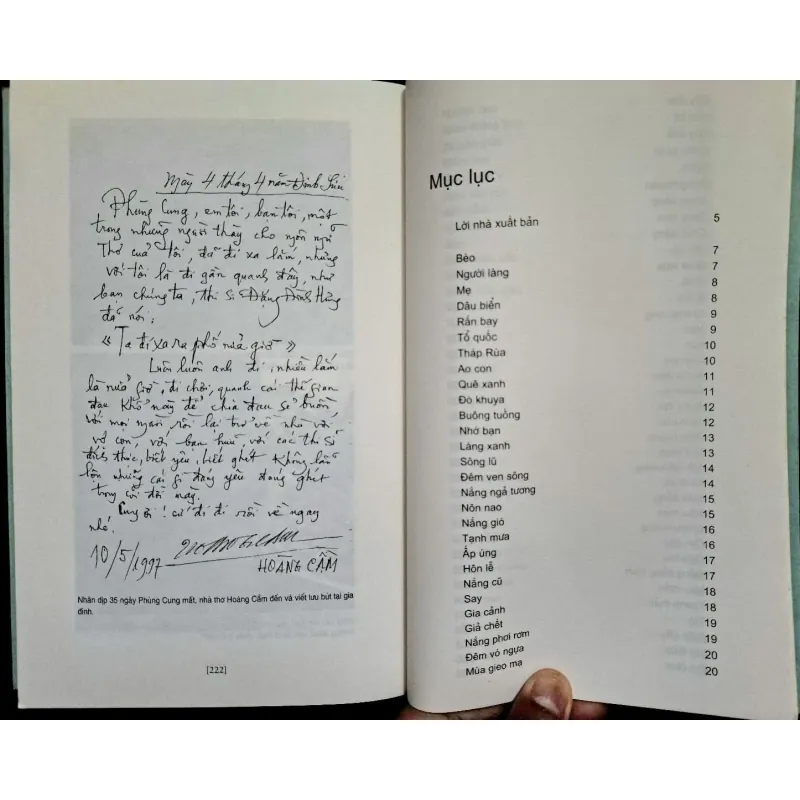 Mày 4 tháng 4 năm Đinh Sửu
Phùng Cung, em tôi, bạn tôi, một
trong những người thày cho ngôn ngữ
Thơ của tôi, đã đi xa lắm, nhưng
với tôi là đi gần quanh đây, như
bạn chúng ta, thi sĩ Đặng Đình Hưng
đã nói:
« Ta đi xa ra phố nửa giờ »
Luôn luôn anh đi, nhiều lắm
là nửa giờ, đi chơi, quanh cái thế gian
đau khổ này để chia đau sẻ buồn
với mọi người, rồi lại trở về nhà với
vợ con, với bạn hữu, với các thi sĩ
đích thực, biết yêu, biết ghét không lẫn
lộn những cái gì đáng yêu đáng ghét
trong cõi đời này.
Cung ơi! cứ đi đi rồi về ngay
nhé.
10/5/1997
HOÀNG CẦM
Nhân dịp 35 ngày Phùng Cung mất, nhà thơ Hoàng Cầm đến và viết lưu bút tại gia
đình.
[222]
Mục lục
Lời nhà xuất bản 5
Bèo 7
Người làng 7
Mẹ 8
Dâu biển 8
Rắn bay 9
Tổ quốc 9
Tháp Rùa 10
Ao con 10
Quê xanh 11
Đò khuya 11
Buông tuồng 12
Nhớ bạn 12
Làng xanh 13
Sông lũ 13
Đêm ven sông 14
Nắng ngả tương 14
Nôn nao 15
Nắng gió 15
Tạnh mưa 16
Ấp úng 16
Hôn lễ 17
Nắng cũ 17
Say 18
Gia cảnh 18
Giả chết 19
Nắng phơi rơm 19
Đêm vó ngựa 20
Mùa gieo mạ 20